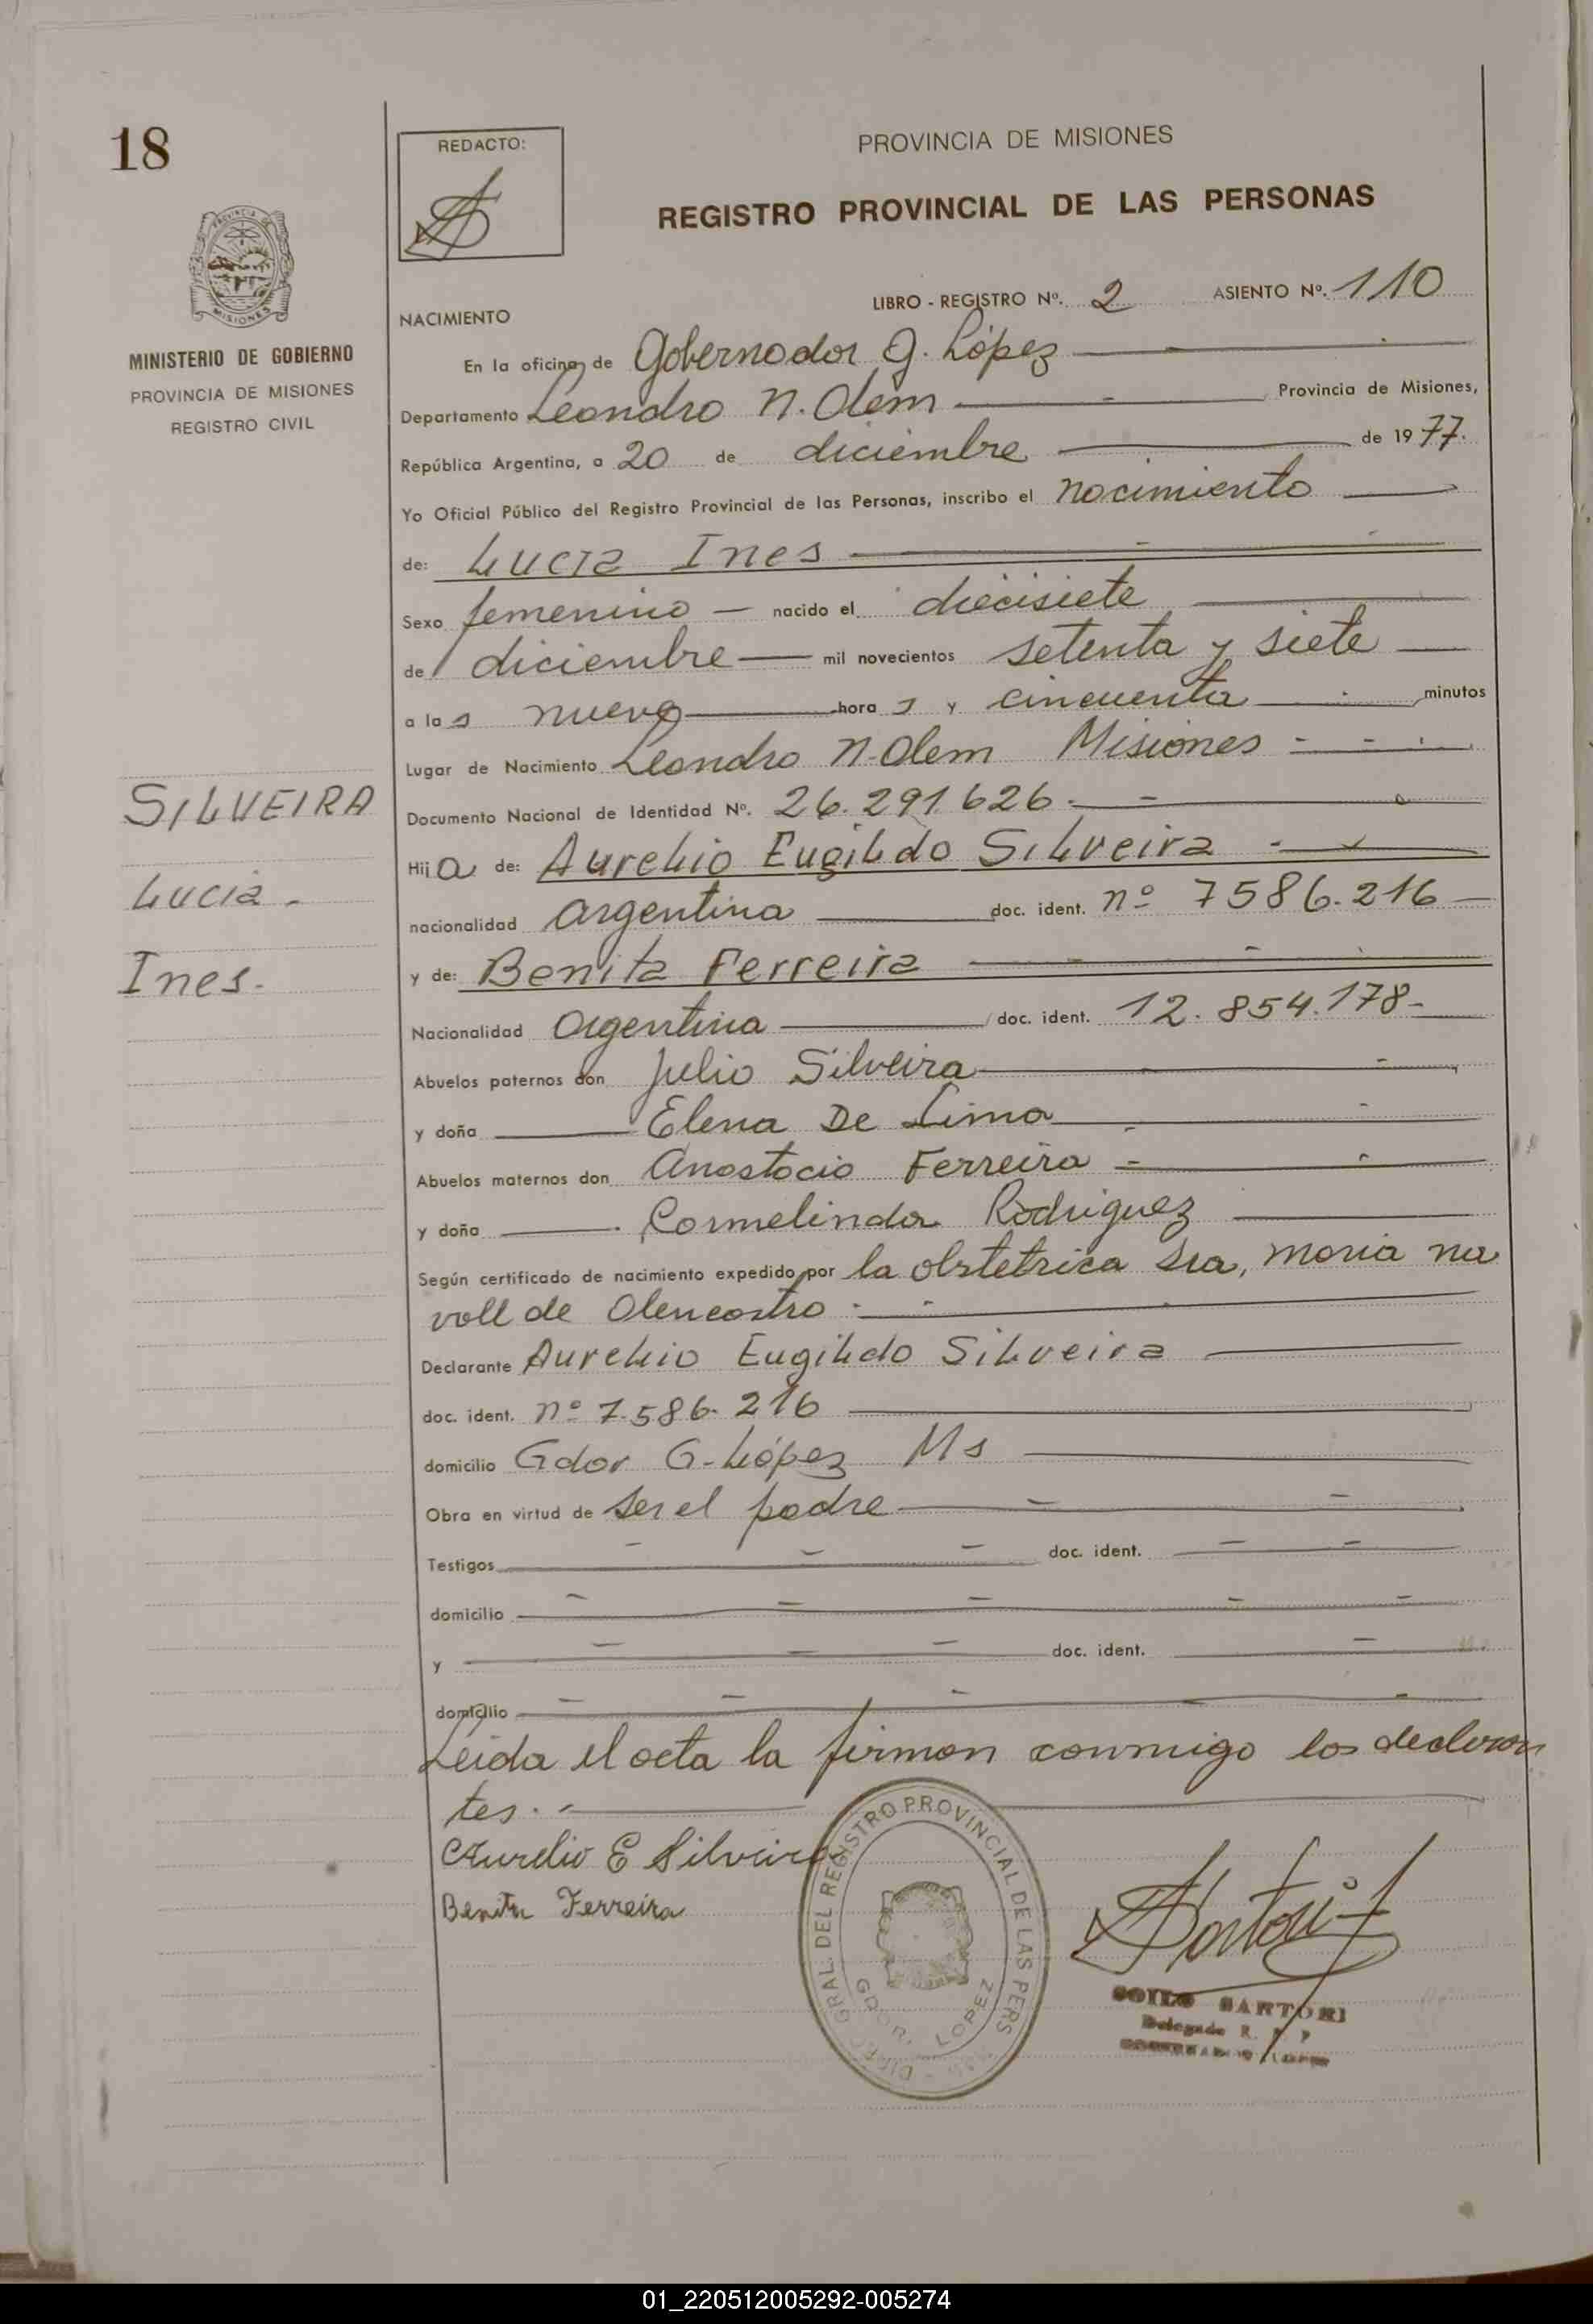 18
REDACTO:
PROVINCIA DE MISIONES
REGISTRO PROVINCIAL DE LAS PERSONAS
MISIONES
MINISTERIO DE GOBIERNO
PROVINCIA DE MISIONES
REGISTRO CIVIL
LIBRO - REGISTRO Nº. 2 ASIENTO Nº. 110
NACIMIENTO
En la oficina de Gobernador G. López
Departamento Leandro N. Alem Provincia de Misiones,
República Argentina, a 20 de diciembre de 1977.
Yo Oficial Público del Registro Provincial de las Personas, inscribo el nacimiento
de: Lucia Ines
Sexo femenino nacido el diecisiete
de diciembre mil novecientos setenta y siete
a las nueve horas y cincuenta minutos
Lugar de Nacimiento Leandro N. Alem Misiones
Documento Nacional de Identidad Nº. 26.291.626.
SILVEIRA
Lucia.
Ines.
Hija de: Aurelio Eugildo Silveira
nacionalidad argentina doc. ident. nº 7586.216
y de: Benita Ferreira
Nacionalidad argentina doc. ident. 12.854.178-
Abuelos paternos don Julio Silveira
y doña Elena De Lima
Abuelos maternos don Anastacio Ferreira
y doña Carmelinda Rodriguez
Según certificado de nacimiento expedido por la obstetrica Sra, Maria Na
voll de Alencastro
Declarante Aurelio Eugildo Silveira
doc. ident. nº 7.586.216
domicilio Gdor G. López Ms
Obra en virtud de ser el padre
Testigos doc. ident.
domicilio
y doc. ident.
domicilio
Leida el acta la firman conmigo los declaran
tes.
Aurelio E Silveira
Benita Ferreira
DIREC. GRAL. DEL REGISTRO PROVINCIAL DE LAS PERS
GDOR. LOPEZ
Sartori
SARTORI
Delegado R. P. P
01_220512005292-005274